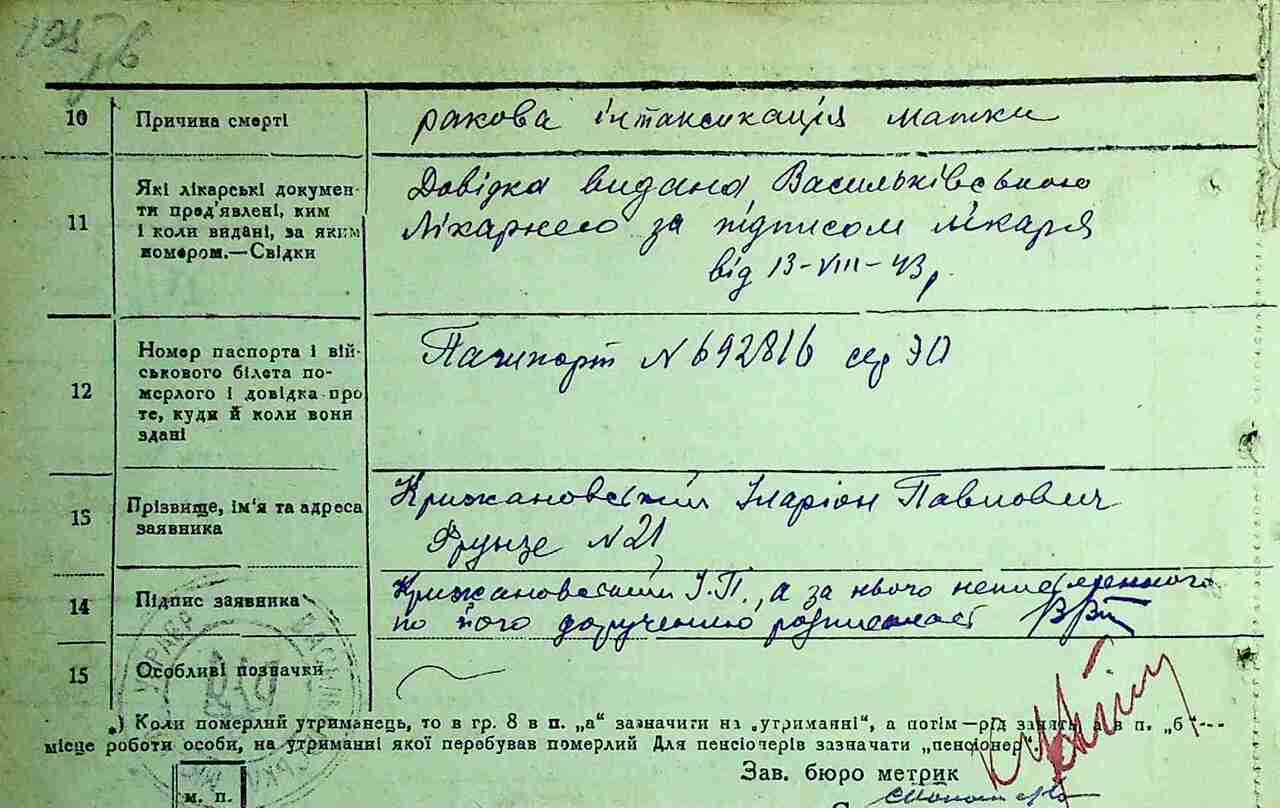 105
10 Причина смерті ракова інтаксикація матки
11 Які лікарські докумен-
ти пред'явлені, ким
і коли видані, за яким
номером.—Свідки
Довідка видана Васильківською
Лікарнею за підписом лікаря
від 13-VIII-43 р.
12 Номер паспорта і вій-
ськового білета по-
мерлого і довідка про
те, куди й коли вони
здані
Пашпорт N 692816 сер ЭО
13 Прізвище, ім'я та адреса
заявника
Крижановський Іларіон Павлович
Фрунзе N 21
14 Підпис заявника
Крижановський І.П., а за нього неписьменного
по його дорученню розписався
15 Особливі позначки
*) Коли померлий утриманець, то в гр. 8 в п. „а“ зазначити на „утриманні“, а потім—рід занять, а в п. „б“---
місце роботи особи, на утриманні якої перебував померлий Для пенсіонерів зазначати „пенсіонер“.
Зав. бюро метрик
м. п.